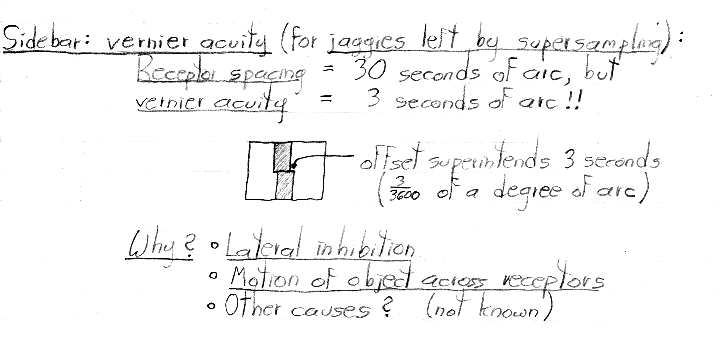 Sidebar: vernier acuity (for jaggies left by supersampling):
Receptor spacing = 30 seconds of arc, but
vernier acuity = 3 seconds of arc!!
offset superintends 3 seconds
(3/3600 of a degree of arc)
Why? • Lateral inhibition
• Motion of object across receptors
• Other causes? (not known)